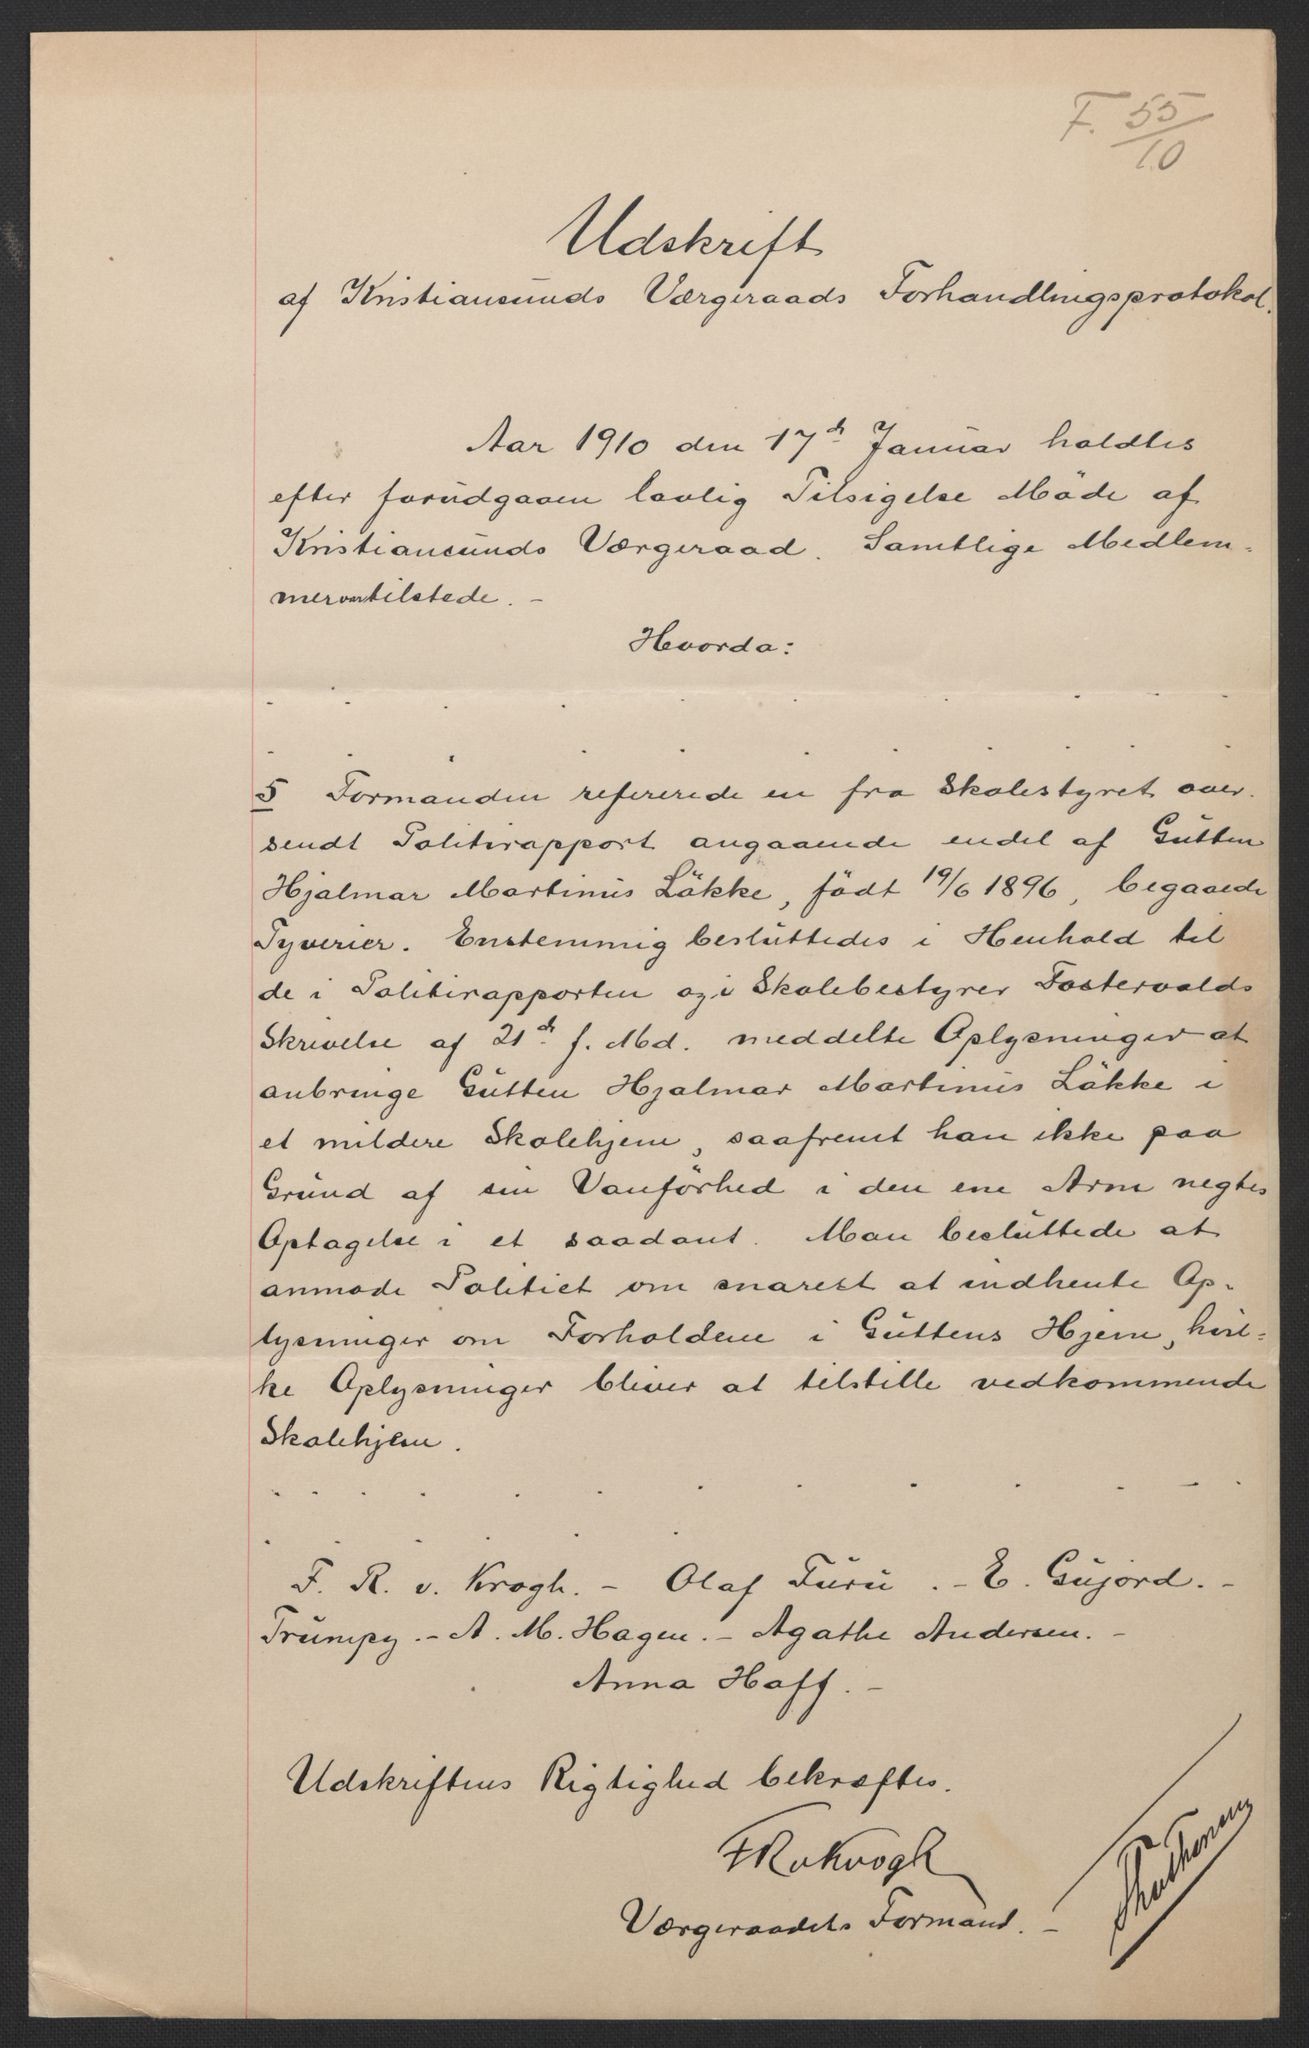 F. 55/10
Udskrift
af Kristiansunds Værgeraads Forhandlingsprotokol.
Aar 1910 den 17de Januar holdtes
efter forudgaaen lovlig Tilsigelse Möde af
Kristiansunds Værgeraad. Samtlige Medlem-
mer var tilstede. -
Hvorda:
5 Formanden refererede en fra Skolestyret over-
sendt Politirapport angaaende endel af Gutten
Hjalmar Martinus Lökke, födt 19/6 1896, begaaede
Tyverier. Enstemmig besluttedes i Henhold til
de i Politirapporten og i Skolebestyrer Fostervolds
Skrivelse af 21de f. Md. meddelte Oplysninger at
anbringe Gutten Hjalmar Martinus Lökke i
et mildere Skolehjem, saafremt han ikke paa
Grund af sin Vanförhed i den ene Arm negtes
Optagelse i et saadant. Man besluttede at
anmode Politiet om snarest at indhente Op-
lysninger om Forholdene i Guttens Hjem, hvil-
ke Oplysninger bliver at tilstille vedkommende
Skolehjem.
F. R. v. Krogh. - Olaf Furu. - E. Gujord. -
Trumpy. - A. M. Hagen. - Agathe Andersen. -
Anna Hoff. -
Udskriftens Rigtighed bekræftes.
FRvKrogh
Værgeraadets Formand. -